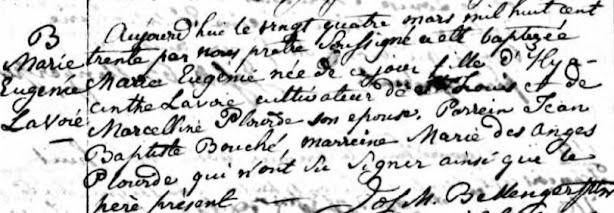 B
Marie
Eugenie
Lavoie
Aujourd'hui le vingt quatre mars mil huit cent
trente par nous prêtre soussigné a été baptezée
Marie Eugenie née de ce jour fille d'Hya-
cinthe Lavoie cultivateur de St Louis et de
Marcelline Plourde son épouse. Parrein Jean
Baptiste Bouché, marreine Marie des Anges
Plourde qui n'ont su signer ainsi que le
père présent Jos. M. Bellenger ptre